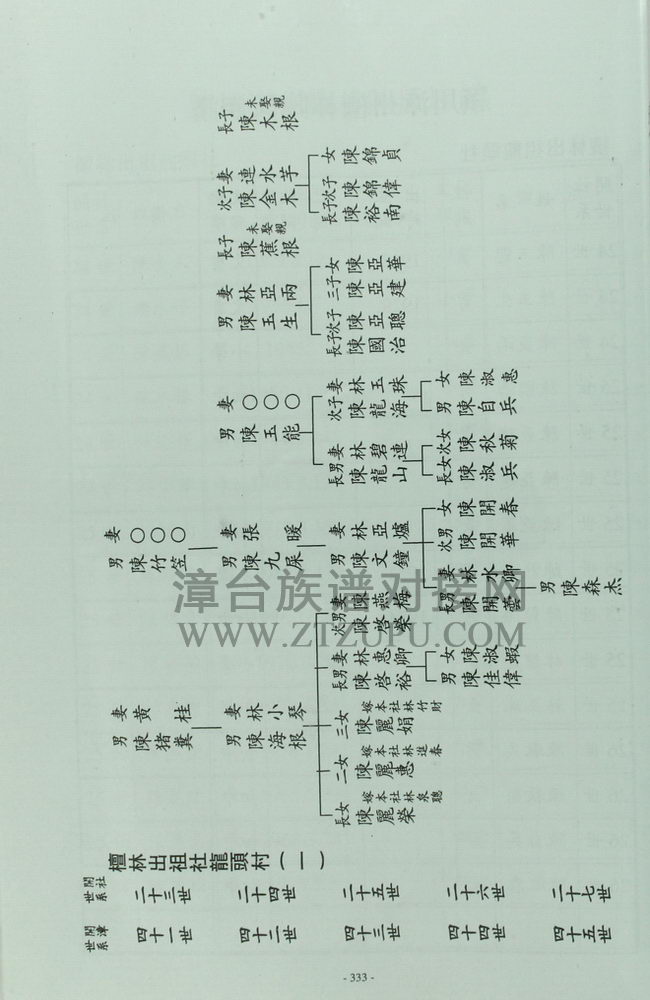 檀林出祖社龍頭村(一)
開漳世系
開社世系
四十一世
二十三世
四十二世
二十四世
四十三世
二十五世
四十四世
二十六世
四十五世
二十七世
男 陳猪糞
妻 黄桂
男 陳海根
妻 林小琴
長女 陳麗榮 嫁本社林泉聰
二女 陳麗惠 嫁本社林進春
三女 陳麗娟 嫁本社林竹財
長男 陳啓裕
妻 林惠卿
男 陳佳偉
女 陳淑蝦
次男 陳啓榮
妻 陳燕梅
男 陳竹笠
妻 ○○○
男 陳九屎
妻 張暖
男 陳文鐘
妻 林亞爐
長男 陳開
妻 林水卿
男 陳森杰
次男 陳開華
女 陳開春
男 陳玉能
妻 ○○○
長男 陳龍山
妻 林碧連
長女 陳淑兵
次女 陳秋菊
次子 陳龍海
妻 林玉珠
男 陳自兵
女 陳淑惠
男 陳玉生
妻 林亞兩
長子 陳國治
次子 陳亞聰
三子 陳亞建
女 陳亞華
長子 陳蕉根 未娶親
次子 陳金木
妻 連水芋
長子 陳裕南
次子 陳錦偉
女 陳錦貞
長子 陳木根 未娶親
- 333 -
漳台族谱对接网
WWW.ZTZUPU.COM